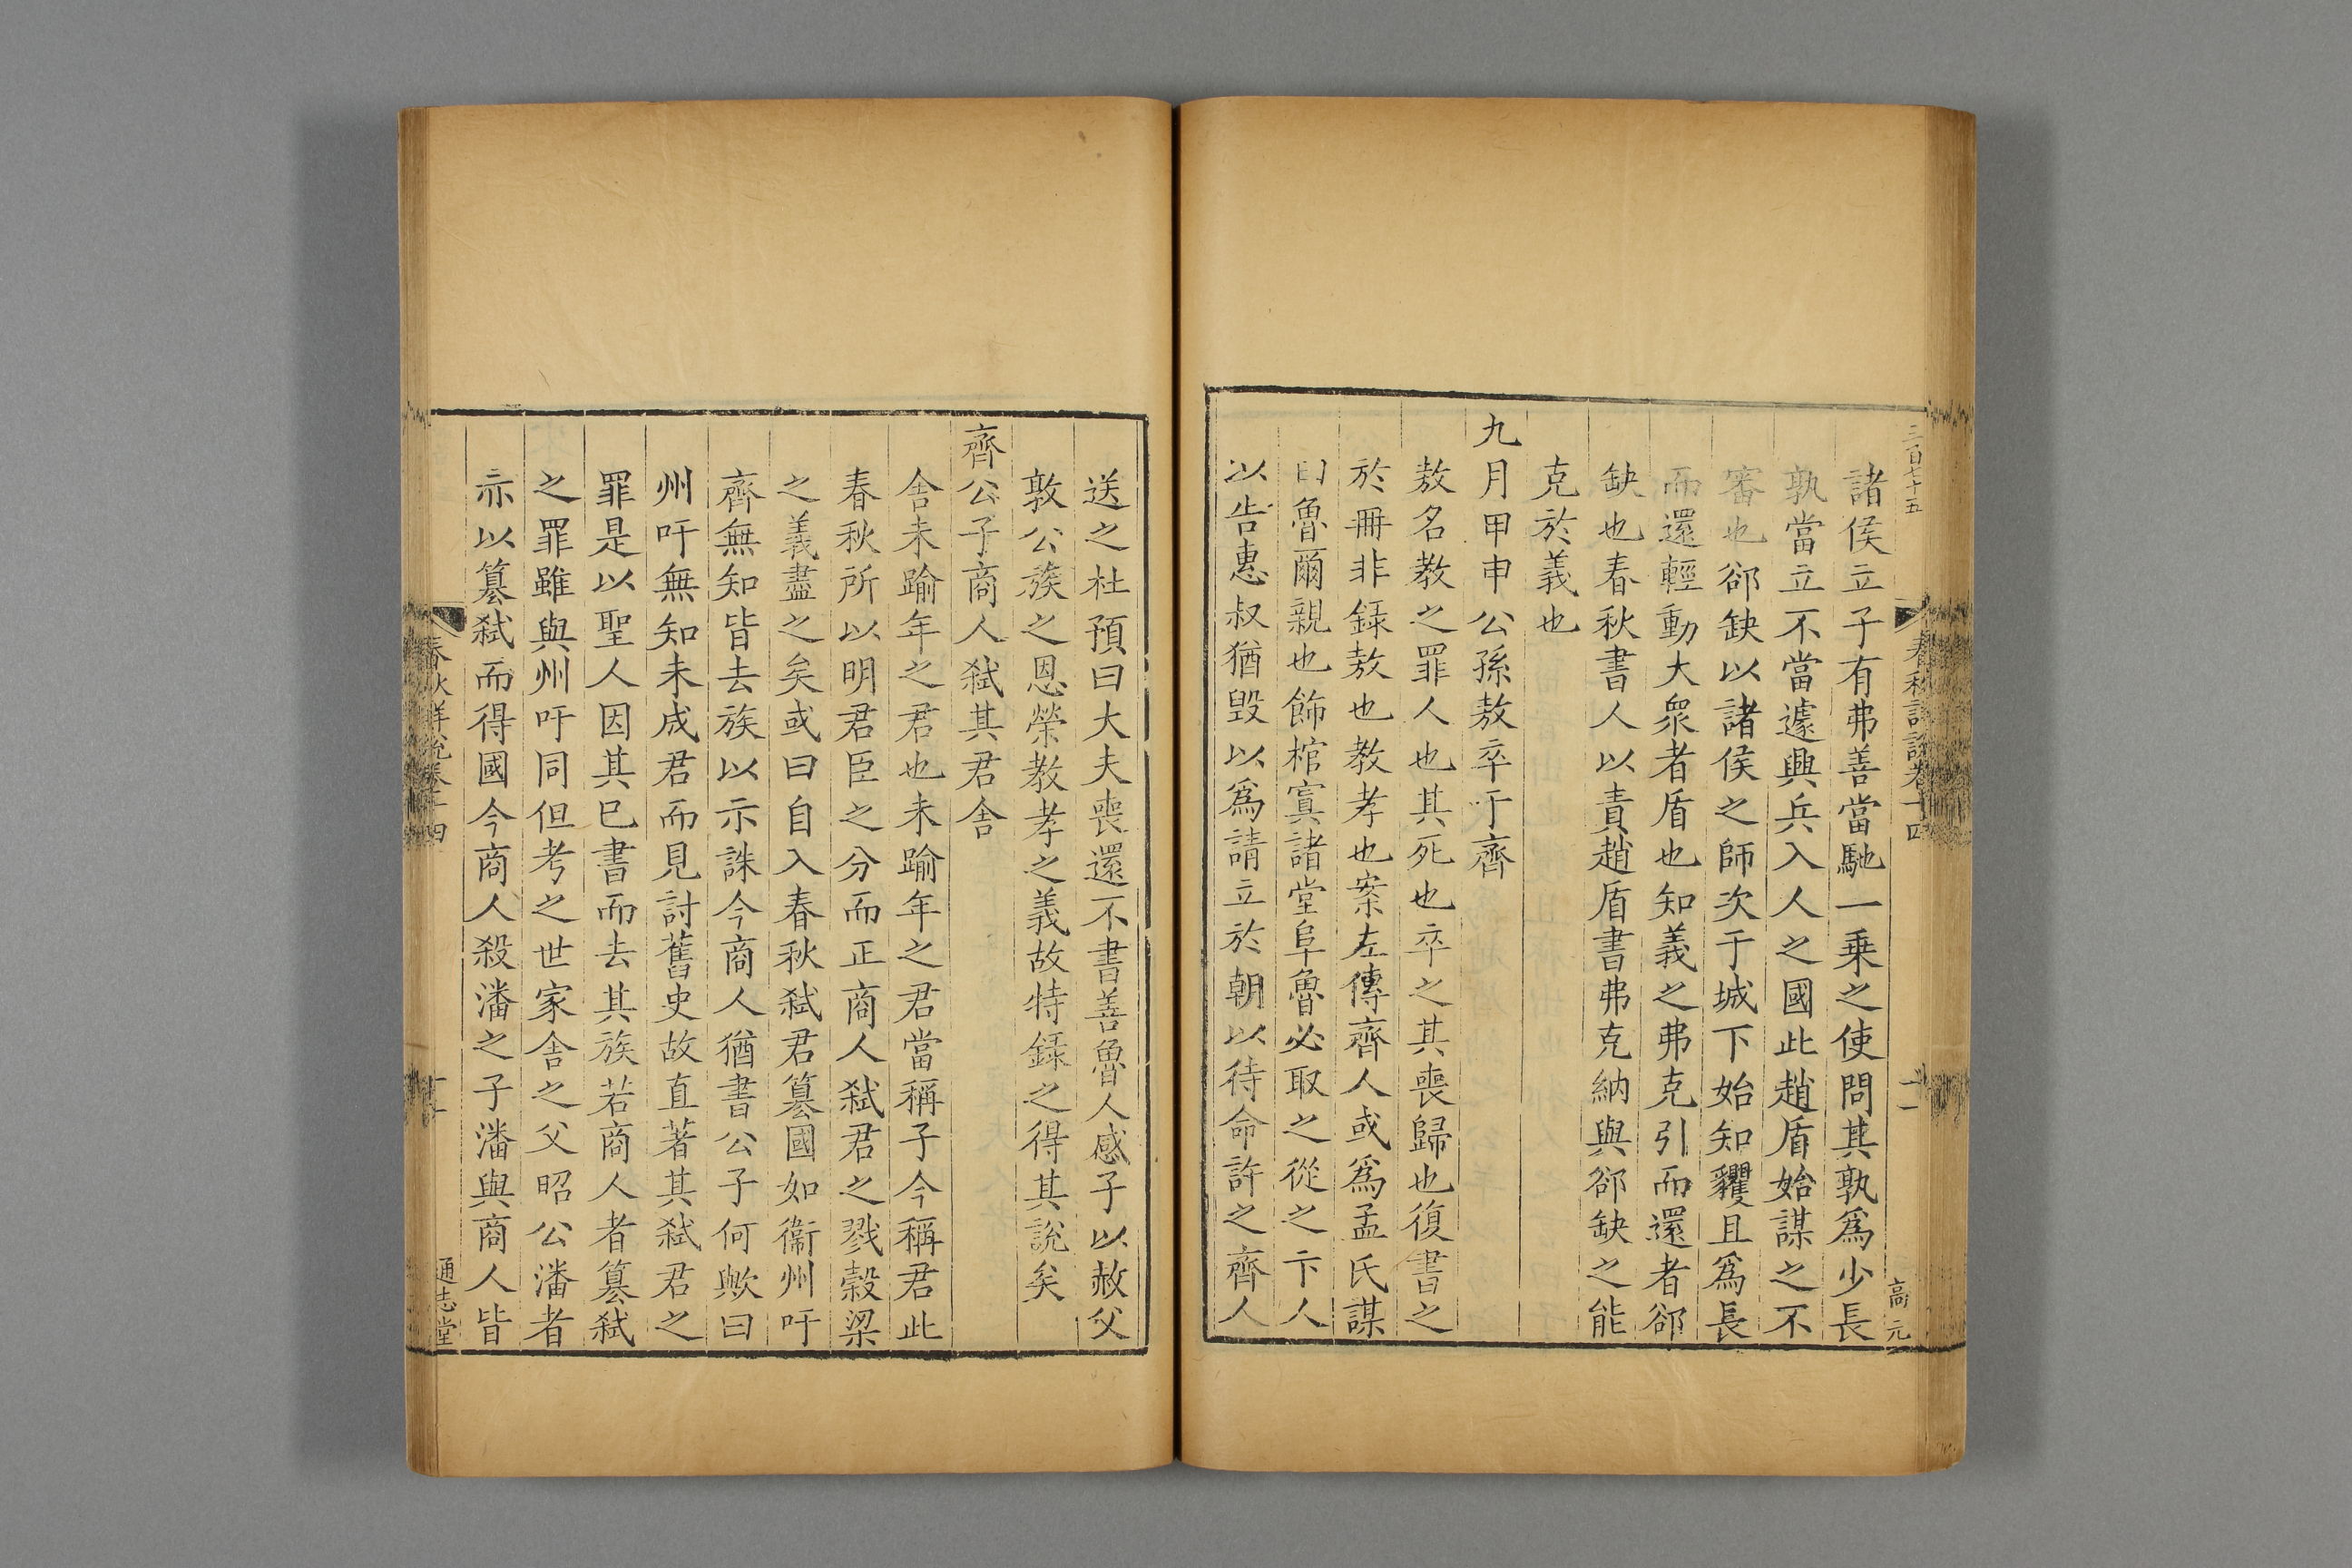 三百七十五
春秋詳說卷十四
十一
高元
諸侯立子有弗善當馳一乗之使問其孰爲少長
孰當立不當遽興兵入人之國此趙盾始謀之不
審也郤缺以諸侯之師次于城下始知貜且爲長
而還輕動大衆者盾也知義之弗克引而還者郤
缺也春秋書人以責趙盾書弗克納與郤缺之能
克於義也
九月甲申公孫敖卒于齊
敖名教之罪人也其死也卒之其喪歸也復書之
於冊非録敖也教孝也案左傳齊人或爲孟氏謀
曰魯爾親也飾棺寘諸堂阜魯必取之從之卞人
以告惠叔猶毀以爲請立於朝以待命許之齊人
送之杜預曰大夫喪還不書善魯人感子以赦父
敦公族之恩榮教孝之義故特録之得其說矣
齊公子商人弑其君舎
舎未踰年之君也未踰年之君當稱子今稱君此
春秋所以明君臣之分而正商人弑君之戮榖梁
之義盡之矣或曰自入春秋弑君簒國如衞州吁
齊無知皆去族以示誅今商人猶書公子何歟曰
州吁無知未成君而見討舊史故直著其弑君之
罪是以聖人因其已書而去其族若商人者簒弑
之罪雖與州吁同但考之世家舎之父昭公潘者
亦以簒弑而得國今商人殺潘之子潘與商人皆
春秋詳說卷十四
十一
通志堂